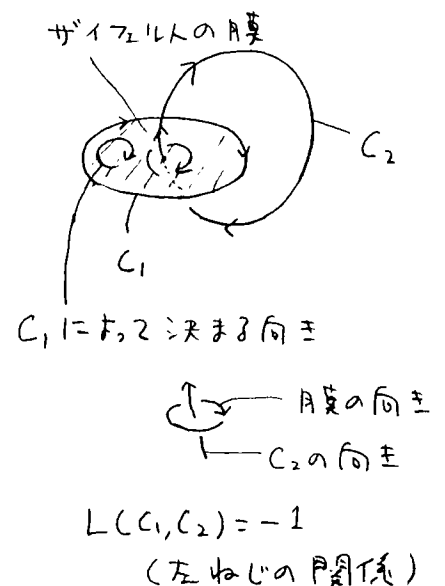 ザイフェルトの膜
C₂
C₁
C₁によって決まる向き
膜の向き
C₂の向き
L(C₁,C₂)=-1
(左ねじの関係)